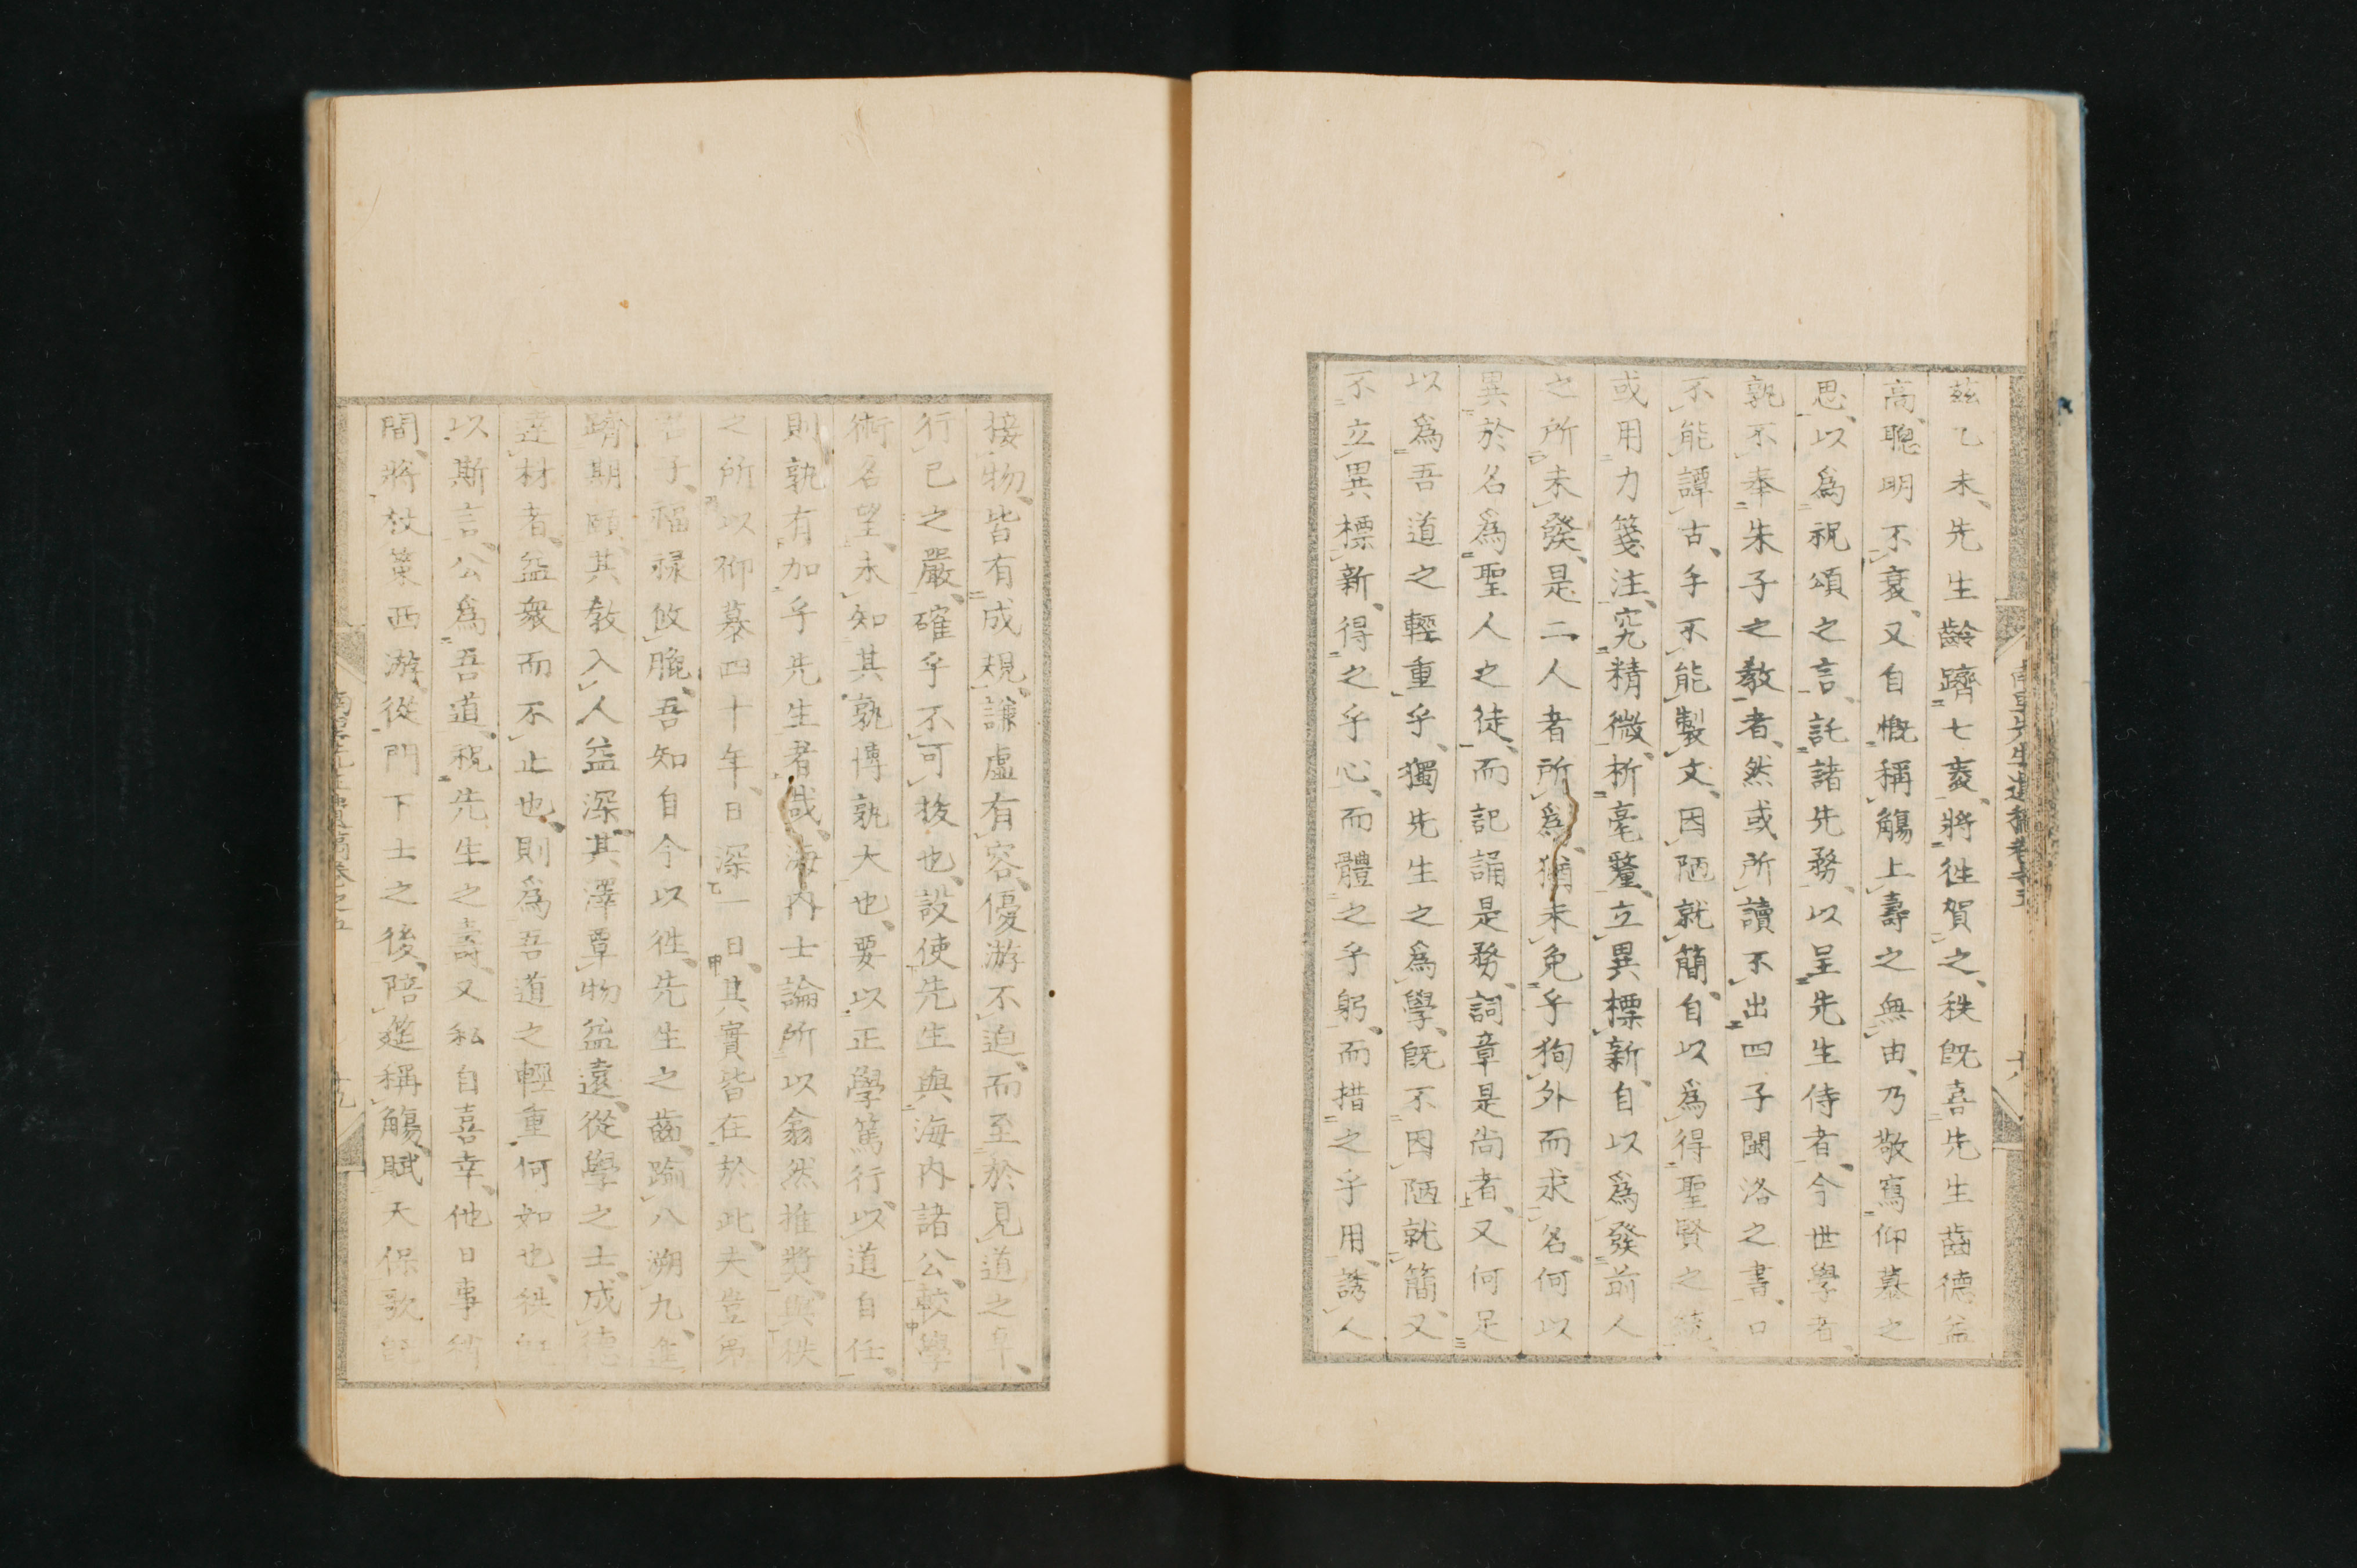 茲乙未、先生齡躋七袠、將徃賀之、秩既喜先生齒德益
高、聰明不衰、又自慨稱觴上壽之無由、乃敬寫仰慕之
思、以爲祝頌之言、託諸先務、以呈先生侍者、今世學者、
孰不奉朱子之教者、然或所讀不出四子閩洛之書、口
不能譚古、手不能製文、因陋就簡、自以爲得聖賢之統、
或用力箋注、究精微、析毫釐、立異標新、自以爲發前人
之所未發、是二人者所爲、猶未免乎狥外而求名、何以
異於名爲聖人之徒、而記誦是務、詞章是尚者、又何足
以爲吾道之輕重乎、獨先生之爲學、既不因陋就簡、又
不立異標新、得之乎心、而體之乎躬、而措之乎用、誘人
接物、皆有成規、謙虛有容、優游不迫、而至於見道之卓、
行己之嚴、確乎不可拔也、設使先生與海内諸公、較學
術名望、未知其孰博孰大也、要以正學篤行、以道自任、
則孰有加乎先生者哉、海内士論所以翕然推奬、與秩
之所以仰慕四十年、日深一日、其實皆在於此、夫豈弟
君子、福祿攸脆、吾知自今以徃、先生之齒、踰八溯九、進
躋期頤、其教入人益深、其澤覃物益遠、從學之士、成德
達材者、益衆而不止也、則爲吾道之輕重何如也、秩既
以斯言、公爲吾道、祝先生之壽、又私自喜幸、他日事
間、將杖策西游、從門下士之後、陪筵稱觴、賦天保歌
南里先生遺稿卷之五
十八
十九